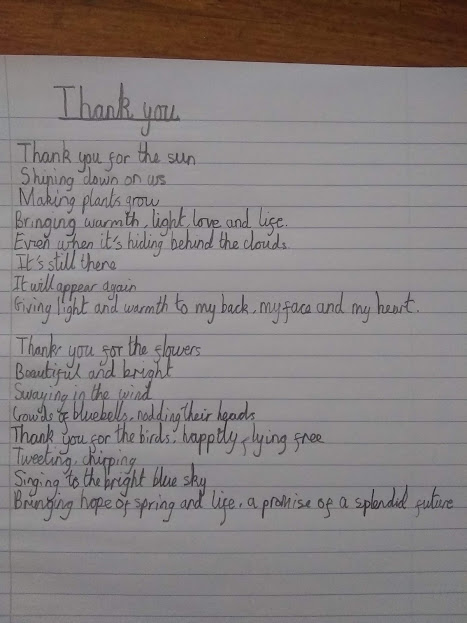 Thank you
Thank you for the sun
Shining down on us
Making plants grow
Bringing warmth, light, love and life.
Even when it's hiding behind the clouds
It's still there
It will appear again
Giving light and warmth to my back, my face and my heart.
Thank you for the flowers
Beautiful and bright
Swaying in the wind
Crowds of bluebells, nodding their heads
Thank you for the birds, happily flying free
Tweeting, chirping
Singing to the bright blue sky
Bringing hope of spring and life, a promise of a splendid future